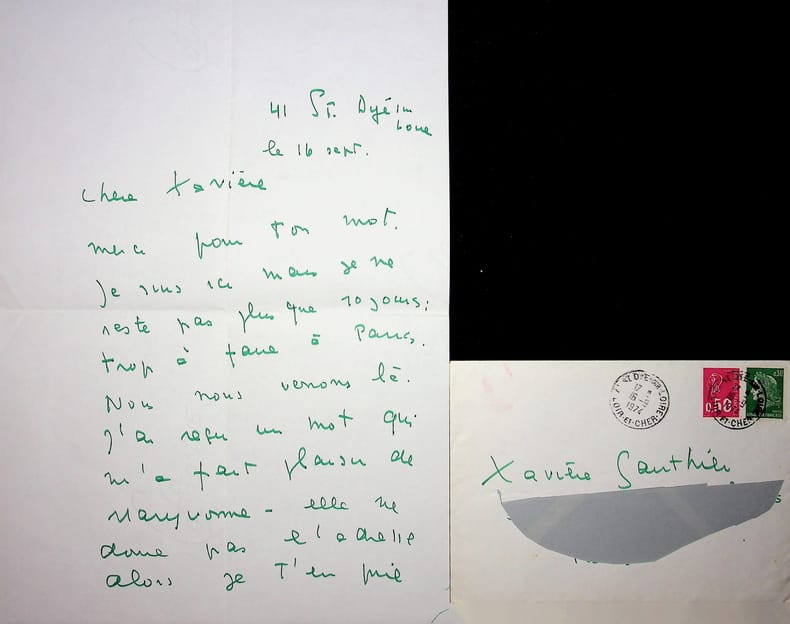 41 St. Dyé sur
Loire
le 16 sept.
Chère Xavière
merci pour ton mot.
Je suis ici mais je ne
reste pas plus que 10 jours;
trop à faire à Paris.
Nous nous verrons là.
J'ai reçu un mot qui
m'a fait plaisir de
Maryvonne - elle ne
donne pas l'adresse
alors je t'en prie
17 H
16-9
1974
LOIR-ET-CHER
0,50
0,30
Xavière Gauthier